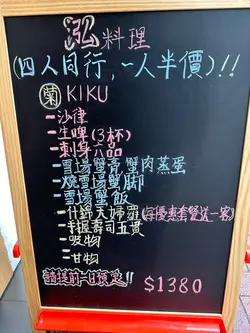 泓料理
(四人同行,一人半價)!!
菊 KIKU
-沙律
-生啤(3杯)
-刺身六品
-雪場蟹膏蟹肉蒸蛋
-燒雪場蟹脚
-雪場蟹飯
-什錦天婦羅(每優惠套餐送一客)
-手握壽司五貫
-吸物
-甘物
請提前一日預定!!
$1380